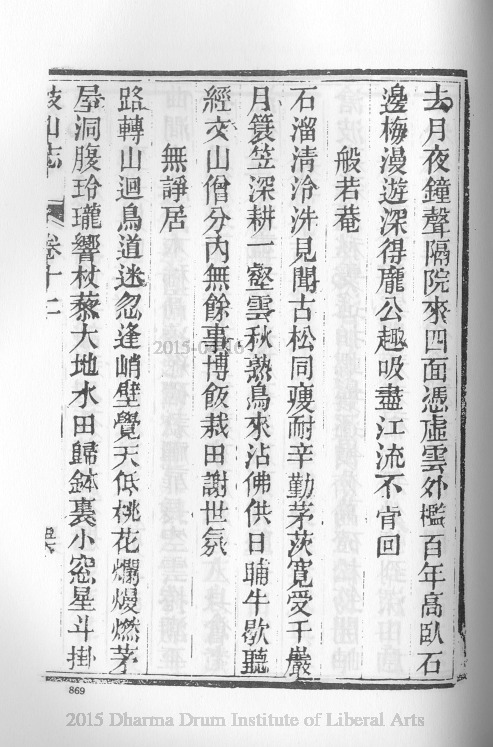 去月夜鐘聲隔院來四面憑虛雲外檻百年高臥石
邊梅漫遊深得龐公趣吸盡江流不肯回
般若菴
石溜清泠洗見聞古松同瘦耐辛勤茅茨寬受千巖
月簑笠深耕一壑雲秋熟鳥來沾佛供日晡牛歇聽
經文山僧分內無餘事博飯栽田謝世氛
無諍居
路轉山迴鳥道迷忽逢峭壁覺天低桃花爛熳燃茅
屋洞腹玲瓏響杖藜大地水田歸鉢裏小窓星斗掛
鼓山志 卷十二
869
2015 Dharma Drum Institute of Liberal Arts